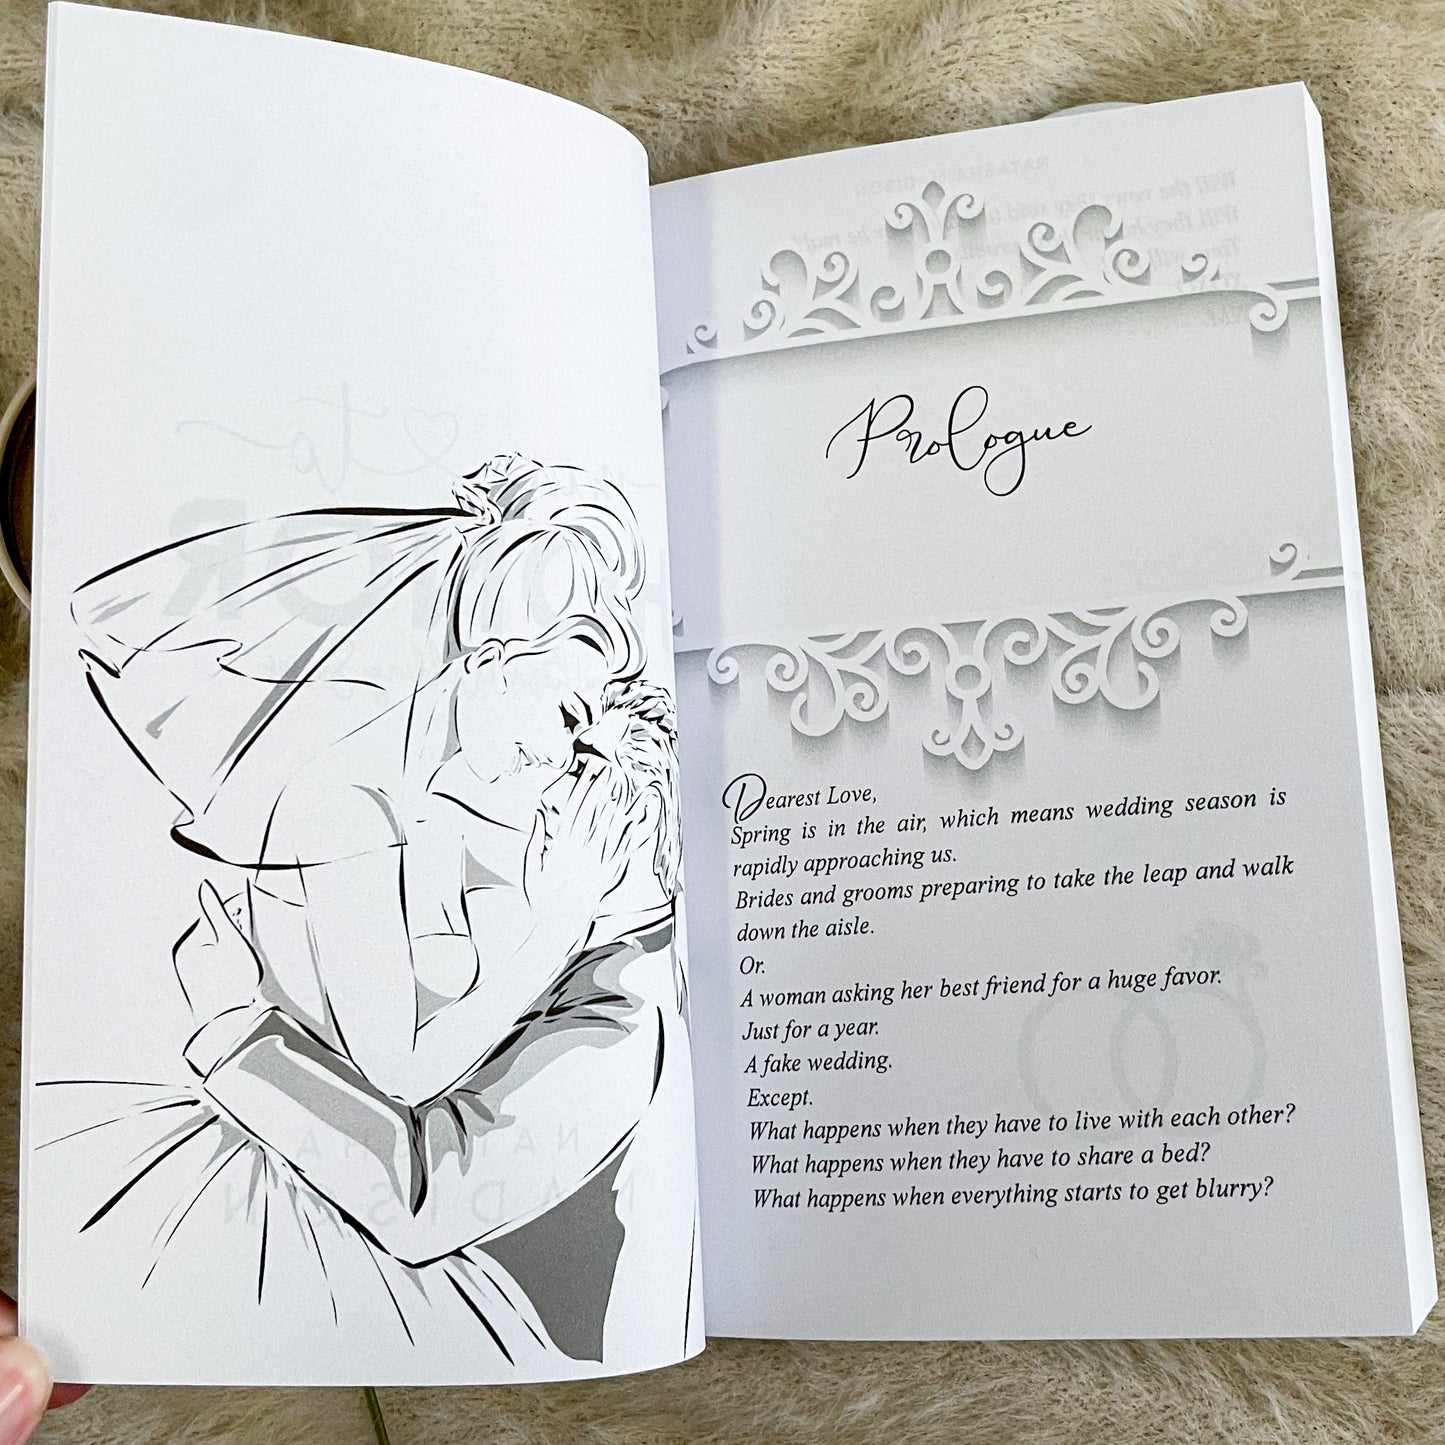 Prologue
Dearest Love,
Spring is in the air, which means wedding season is
rapidly approaching us.
Brides and grooms preparing to take the leap and walk
down the aisle.
Or.
A woman asking her best friend for a huge favor.
Just for a year.
A fake wedding.
Except.
What happens when they have to live with each other?
What happens when they have to share a bed?
What happens when everything starts to get blurry?